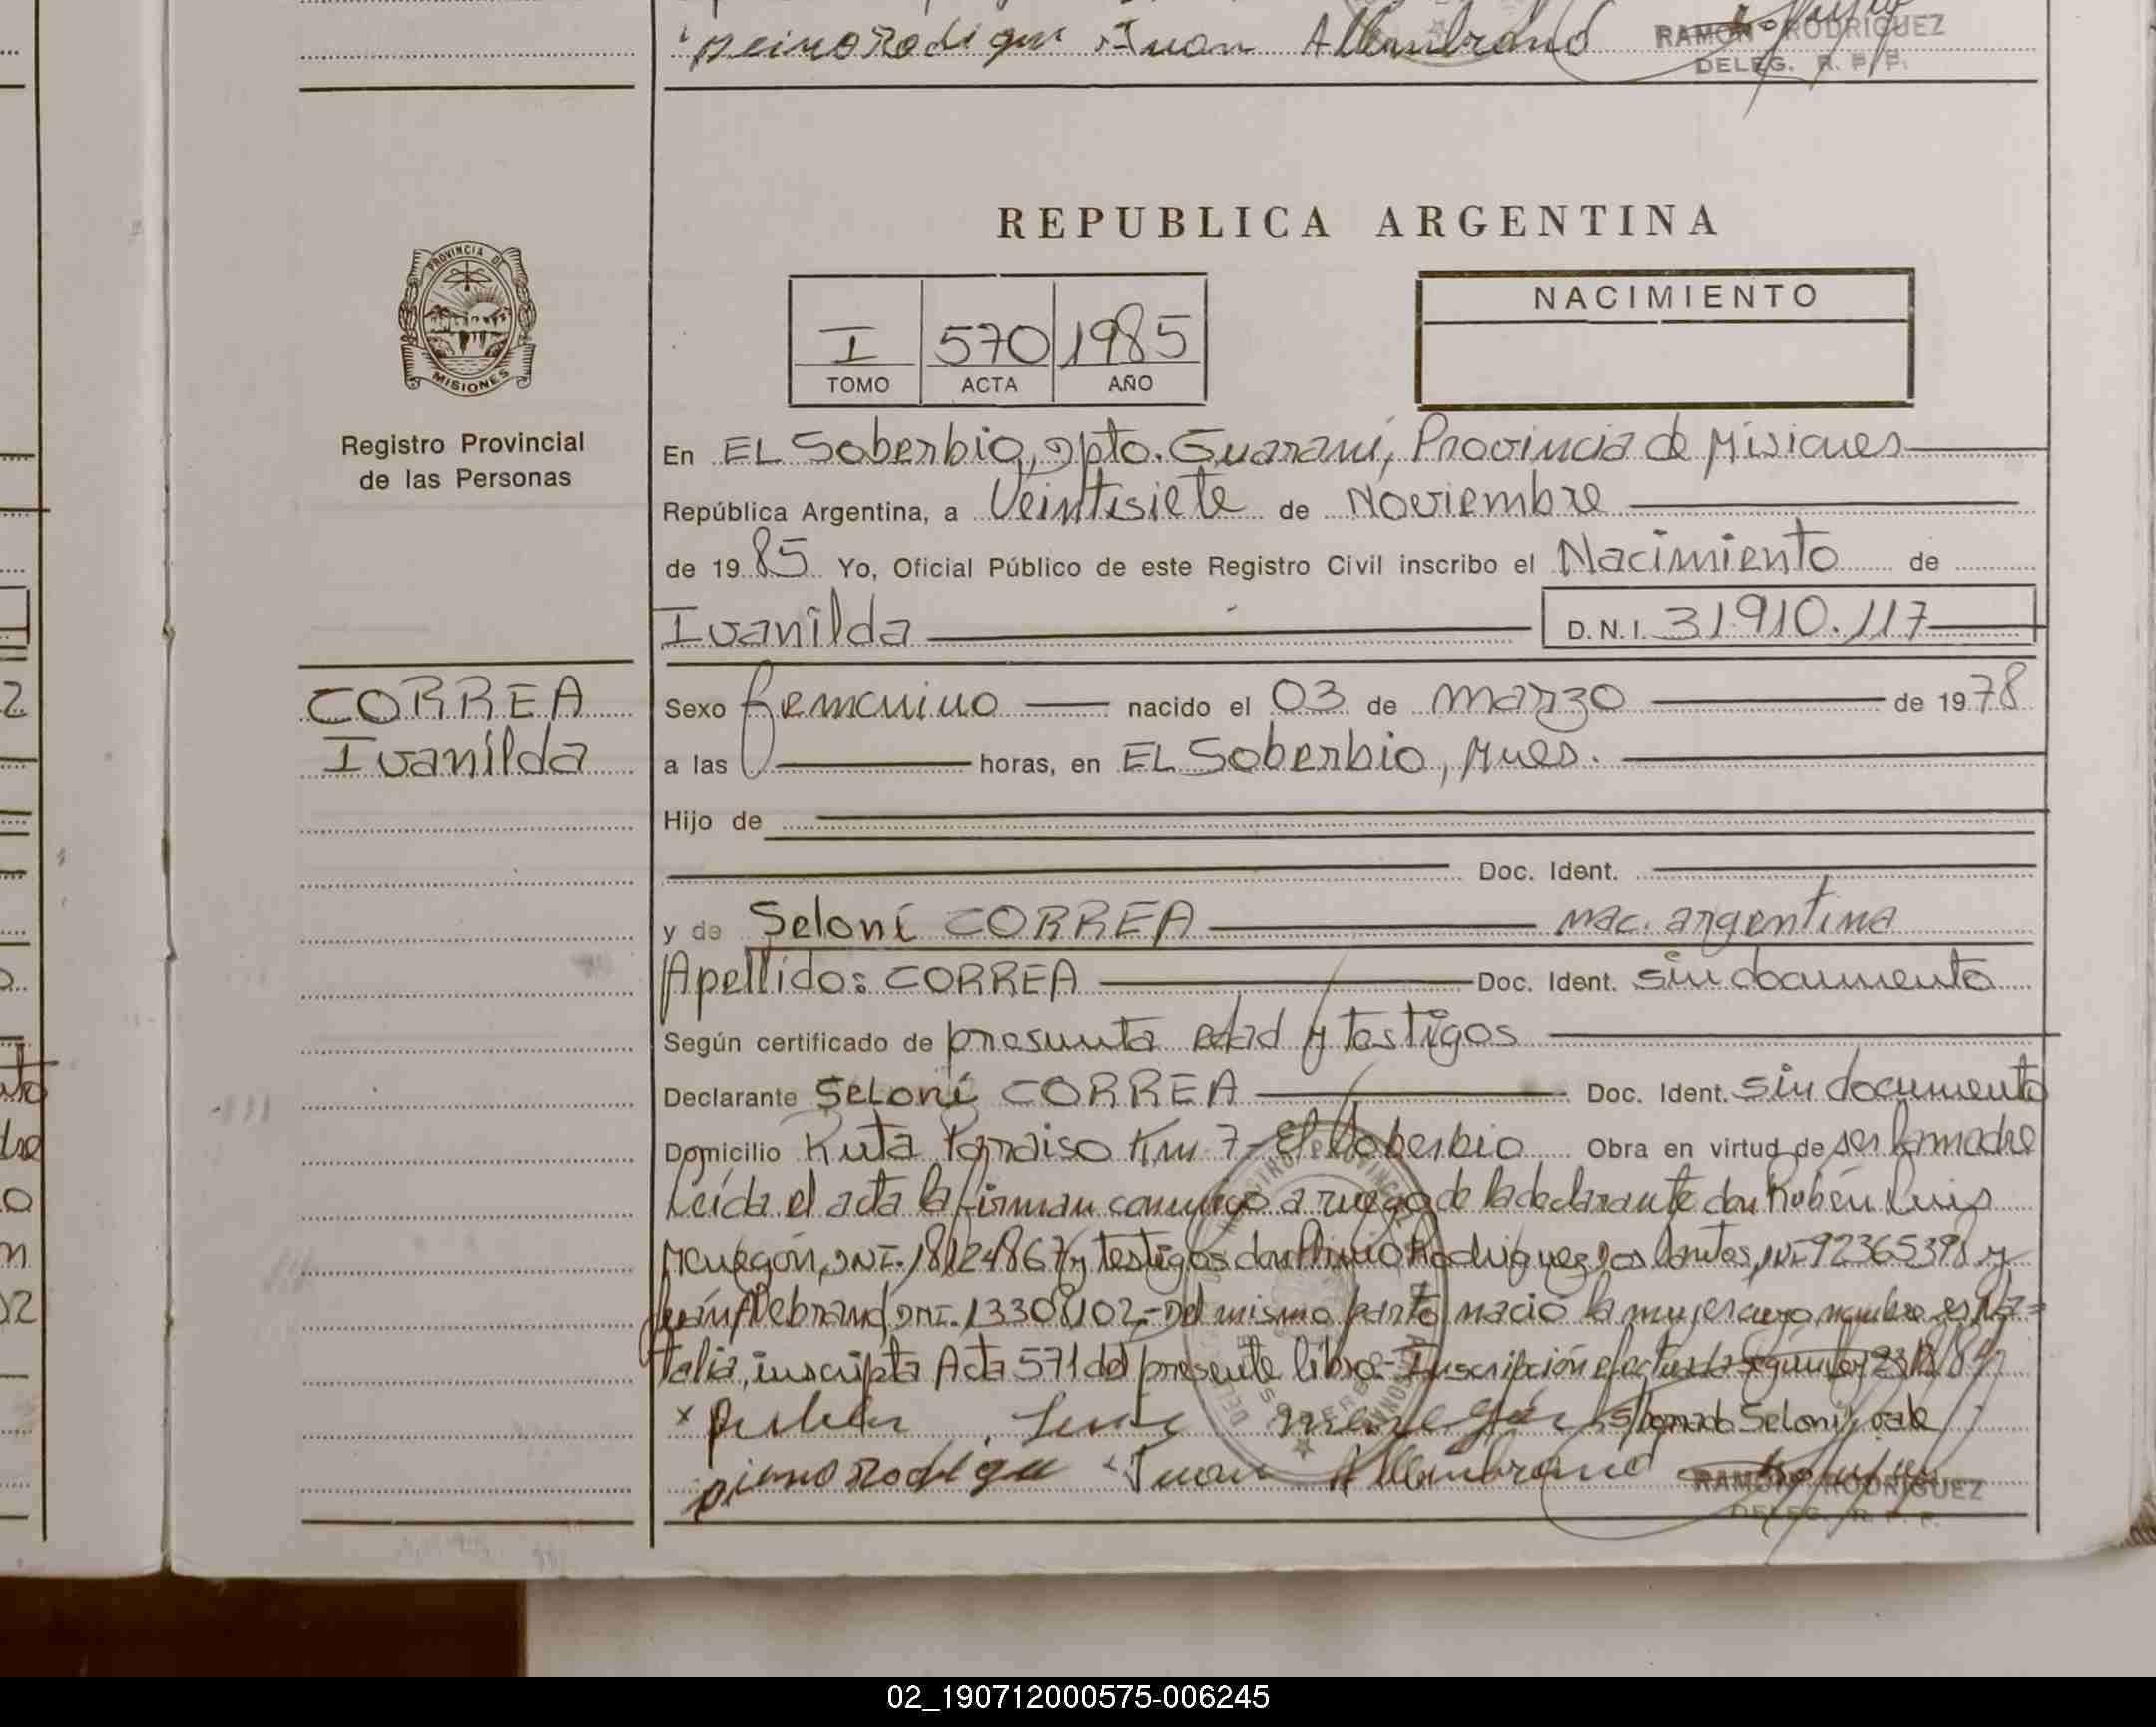 Juan
RAMON RODRIGUEZ
DELEG. R. P. P.
REPUBLICA ARGENTINA
PROVINCIA DE
MISIONES
Registro Provincial
de las Personas
I 570 1985
TOMO ACTA AÑO
NACIMIENTO
En EL Soberbio, Dpto. Guaraní, Provincia de Misiones
República Argentina, a Veintisiete de Noviembre
de 1985 Yo, Oficial Público de este Registro Civil inscribo el Nacimiento de
Ivanilda D.N.I. 31.910.117
CORREA
Ivanilda
Sexo femenino nacido el 03 de marzo de 1978
a las horas, en EL Soberbio, Mnes.
Hijo de
Doc. Ident.
y de Seloní CORREA nac. argentina
Apellido: CORREA Doc. Ident. sin documento
Según certificado de presunta edad y testigos
Declarante Seloní CORREA Doc. Ident. sin documento
Domicilio Ruta Paraiso Km 7 - El Soberbio Obra en virtud de ser la madre
Leída el acta la firman conmigo a ruego de la declarante don Rubén Luis
Menegón, DNI. 18124867 y testigos don Rodriguez Dos Santos, 92365398 y
DNI. 13308102.- Del mismo parto nació la mujer cuyo nombre es Na=
talia, inscripta Acta 571 del presente libro.- Inscripción efectuada según ley
Seloní, vale
Juan
RAMON RODRIGUEZ
DELEG. R. P. P.
02_190712000575-006245